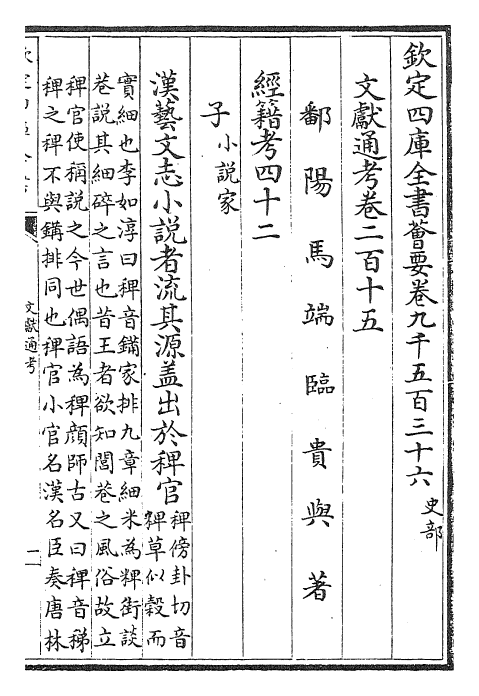 欽定四庫全書薈要卷九千五百三十六 史部
文獻通考卷二百十五
鄱陽馬端臨貴與著
經籍考四十二
子 小說家
漢藝文志小說者流其源盖出於稗官 稗傍卦切音
稗草似榖而
實細也李如淳曰稗音鏾家排九章細米為粺街談
巷說其細碎之言也昔王者欲知閭巷之風俗故立
稗官使稱說之今世偶語為稗顔師古又曰稗音稊
稗之稗不與鏾排同也稗官小官名漢名臣奏唐林
文獻通考
一